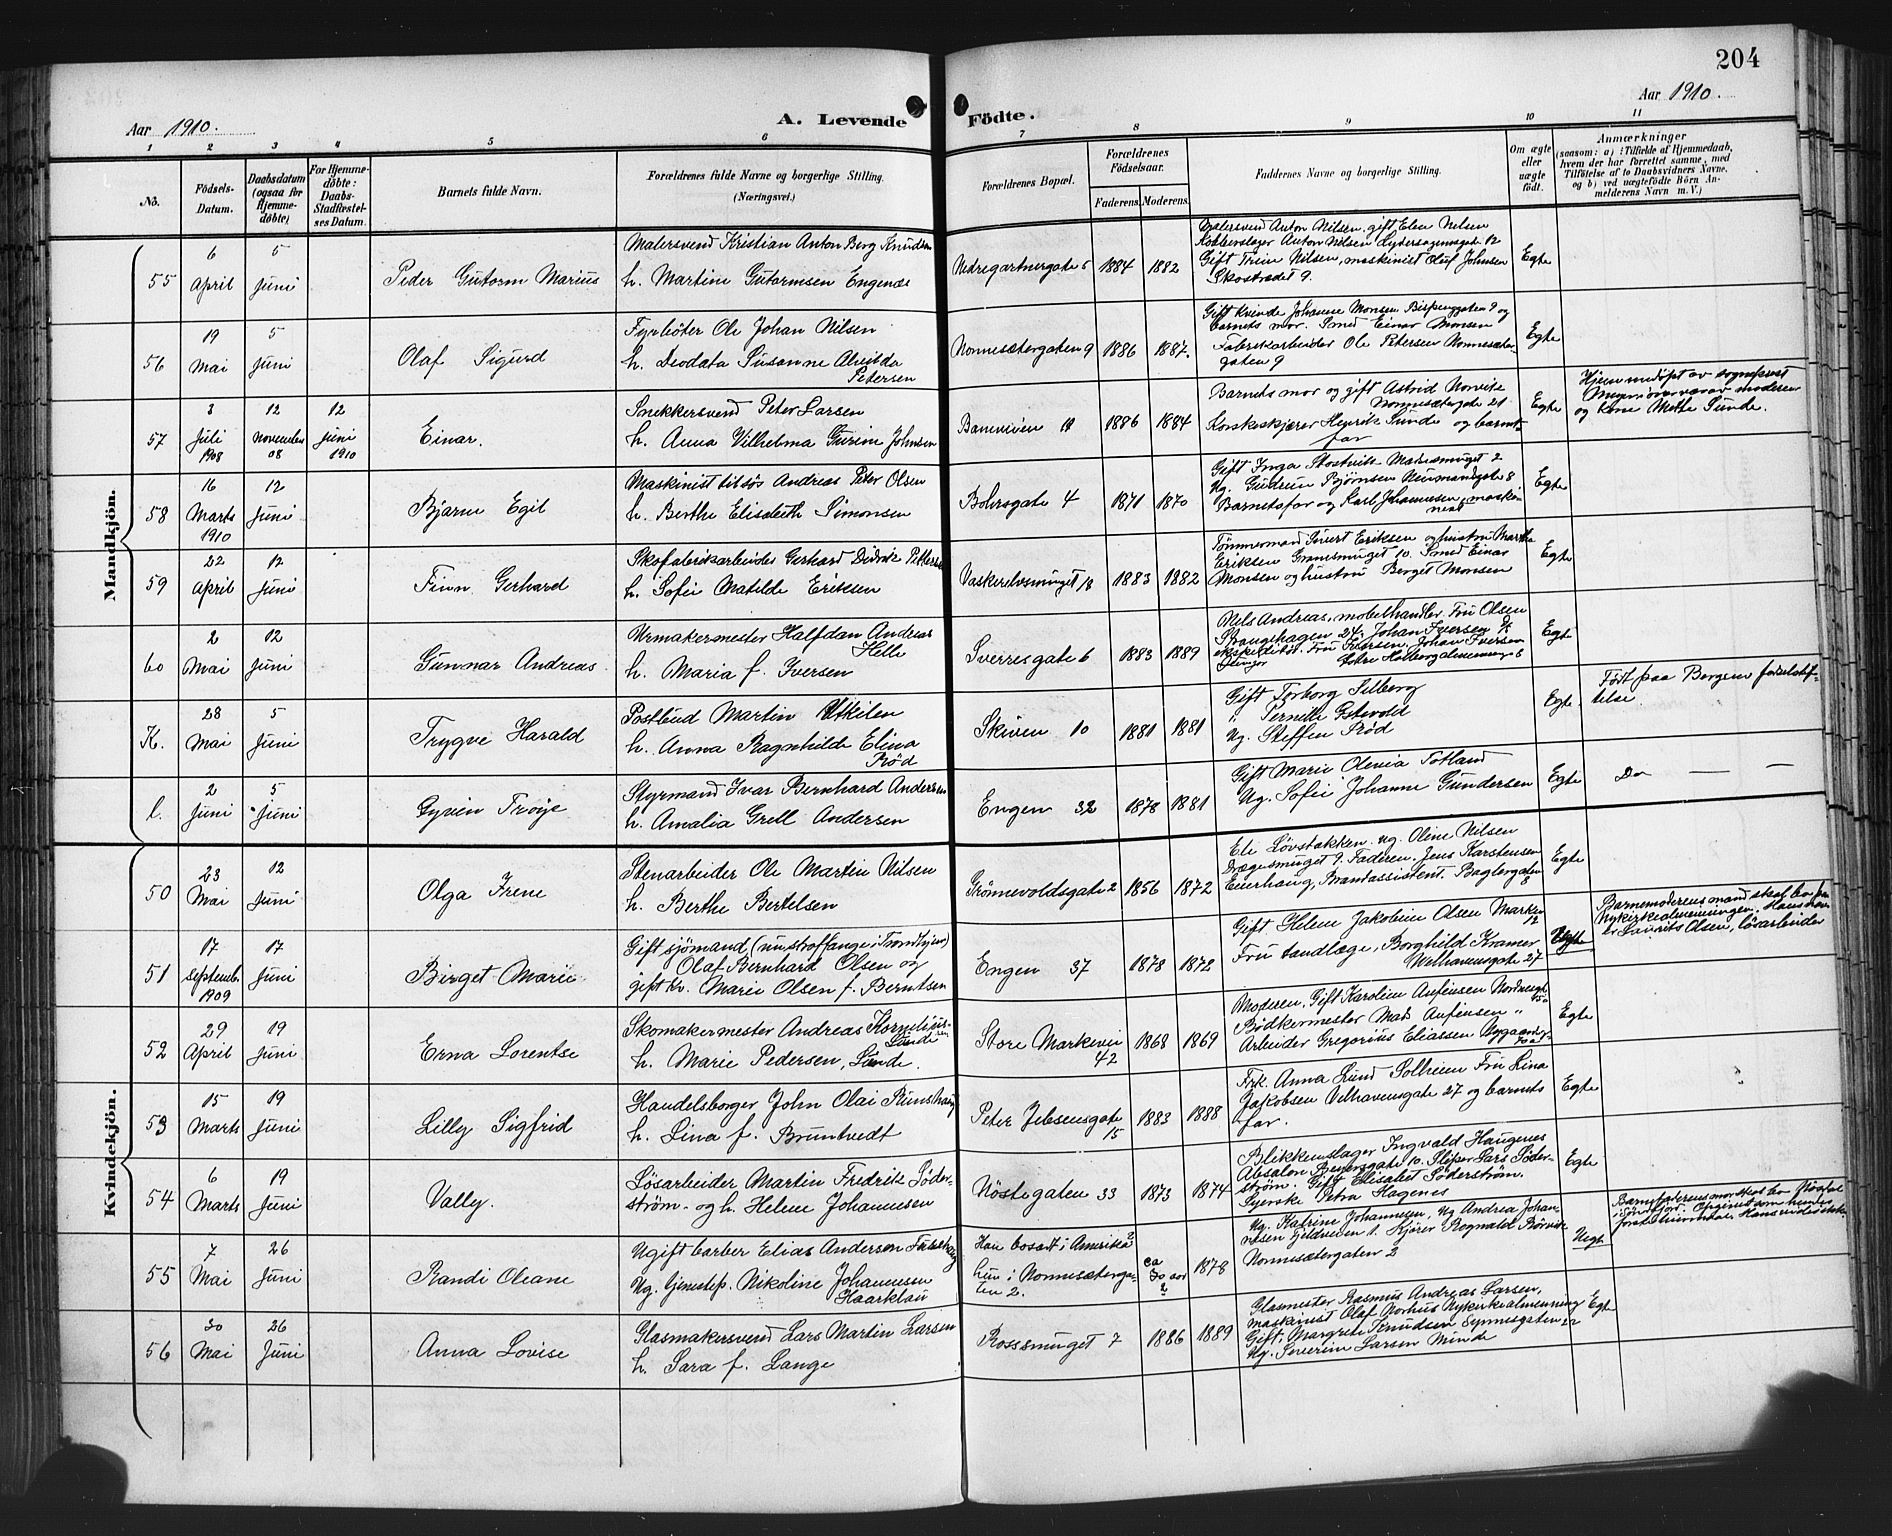 204
Aar 1910.
A. Levende
Födte.
Aar 1910.
1 2 3 4 5 6 7 8 9 10 11
No.
Födsels-
Datum.
Daabsdatum
(ogsaa for
Hjemme-
döbte)
For Hjemme-
döbte:
Daabs-
Stadfæstel-
ses Datum.
Barnets fulde Navn.
Forældrenes fulde Navne og borgerlige Stilling.
(Næringsvei.)
Forældrenes Bopæl.
Forældrenes
Födselsaar.
Faderens. Moderens.
Faddernes Navne og borgerlige Stilling.
Om ægte
eller
uægte
födt.
Anmærkninger
(saasom: a) i Tilfælde af Hjemmedaab,
hvem der har forrettet samme, med
Tilföielse af to Daabsvidners Navne,
og b) ved uægtefödte Börn An-
melderens Navn m. V.)
Mandkjön.
55
6
April
5
Juni
Peder Gutorm Marius
Malersvend Kristian Anton Berg Knudsen
h. Martine Gutormsen Engenæs
Nedregartnergate 5
1884 1882
Malersvend Anton Nilsen, gift Elen Nilsen
Kobberslager Anton Nilsen Lydersagensgate 12
Gift Trine Nilsen, maskinist Oluf Johnsen
Skostrædet 9.
Egte
56
19
Mai
5
Juni
Olaf Sigurd
Fyrböter Ole Johan Nilsen
h. Deodata Susanne Alvilda
Petersen
Nonnesætergaten 9
1886 1887.
Gift Kvinde Johanne Monsen Bispenggaten 9 og
barnets mor. Smed Einar Monsen
Fabrikarbeider Ole Petersen Nonnesæter-
gaten 9
Egte
57
3
Juli
1908
12
November
08
12
Juni
1910
Einar.
Snekkersvend Peter Larsen
h. Anna Vilhelma Gurine Johnsen
Baneveien
1886 1884
Barnets mor og gift Astrid Norvik
Nonnesætergate 21
Korkeskjærer Henrik Sunde og barnets
far
Egte
Hjemmedöpt av sogneprest
Meyer i overvær av moderen
og kone Mathe Sunde.
58
16
Marts
1910
12
Juni
Bjarne Egil
Maskinist tilsös Andreas Peter Olsen
h. Berthe Elisabeth Simonsen
Bohrsgate 4
1871 1870
Gift Inga Skostvik
Ug. Gudrun Björnsen Neumannsgate 8
Barnetsfar og Karl Johannesen, maski-
nist
Egte
59
22
April
12
Juni
Finn Gerhard
Skofabrikarbeider Gerhard Didrik Pettersen
h. Sofie Matilde Eriksen
Vaskerelvsmuget 18
1883 1882
Tömmermand Sivert Eriksen og hustru Martha
Eriksen 10. Smed Einar
Monsen og hustru Berget Monsen
Egte
60
2
Mai
12
Juni
Gunnar Andreas.
Urmakermester Halfdan Andreas
Helle
h. Maria f. Iversen
Sverresgate 6
1883 1889
Nils Andreas, mobelhandler. Fru Olsen
Strangehagen 24. Johan Iversen
Fru Iversen, Johan Iversen
Egte
K.
28
Mai
5
Juni
Trygve Harald
Postbud Martin Utkilen
h. Anna Ragnhilde Elina
Röd
Skiven 10
1881 1881
Gift Torborg Silberg
" Pernille Gstevold
Ug. Steffen Röd
Egte.
Födt paa Bergens födselsstif-
telse.
l.
2
Juni
5
Juni
Gyrien Troye
Styrmand Ivar Bernhard Andersen
h. Amalia Grell Andersen
Engen 32
1878 1881
Gift Marie Olevia Totland
Ug. Sofie Johanne Gundersen
Egte
Do — —
Kvindekjön.
50
23
Mai
12
Juni
Olga Irene
Stenarbeider Ole Martin Nilsen
h. Berthe Bertelsen
Grönnevoldsgate 2
1856 1872
Eli Lövstakken. ug. Oline Nilsen
Dræggesmuget 9. Faderen, Jens Karstensen
Eierhaug, Brandassistent. Baglergaten
8
Egte
51
17
Septemb.
1909
17
Juni
Birget Marie
Gift sjömand (nu straffange i Trondhjem)
Olaf Bernhard Olsen og
gift kv. Marie Olsen f. Berntsen
Engen 37
1878 1872
Gift Helene Jakobine Olsen Marken
12
Fru tandlæge, Borghild Kramer
Welhavensgate 27
Uegte
Barnemoderens mand skal bo paa
Nykirkealmenningen. Hans navn
er Laurits Olsen, lösarbeider
52
29
April
19
Juni
Erna Lorentse
Skomakermester Andreas Kornelius-
sen
Sunde
h. Marie Pedersen, Sunde.
Store Markevei
42
1868 1869
Moderen, Gift Karoline Anfinsen Nordnesgt.
45a
Bödkermester Mat. Anfinsen "
Arbeider Gregorius Eliassen Nygaards-
Egte
53
15
Marts
19
Juni
Lilly Sigfrid
Handelsborger John Olai Runshaug
h. Lina f. Bruntvedt
Peter Jebsensgate
15
1883 1888
Frk. Anna Lund Solheim Fru Lina
Jakobsen Velhavensgate 27 og barnets
far.
Egte
54
6
Marts
19
Juni
Vally.
Lösarbeider Martin Fredrik Söder-
ström og h. Helene Johannesen
Nöstegaten 33
1873 1874
Blikkenslager Ingvald Haugenes
Absalon Beyersgate 10. Sliper Lars Söder-
ström. Gift Elisabet Söderström.
Syerske Petra Hagenes
Egte
55
7
Mai
26
Juni
Randi Oleane
Ugift barber Elias Andersen Færehaug
Ug. tjenestep. Nikoline Johannesen
Haarklau
Han bosatt i Amerika?
hun i Nonnesæterga-
ten 2.
ca
30 aar
?
1878
Ug. Katrine Johannesen, ug Andrea Johan-
nesen Geldveien 1. Kjörer Rognald Rörvik
Nonnesætergaten 2
Uegt.
56
30
Mai
26
Juni
Anna Lovise
Glasmakersvend Lars Martin Larsen
h. Sara f. Lange
Rossmuget 7
1886 1889
Glasmester Rasmus Andreas Larsen,
maskinist Olaf Norhus Nykirkealmenning
Gift. Margrete Knudsen Synnesgaten 22
Ug. Severine Larsen Minde
Egte